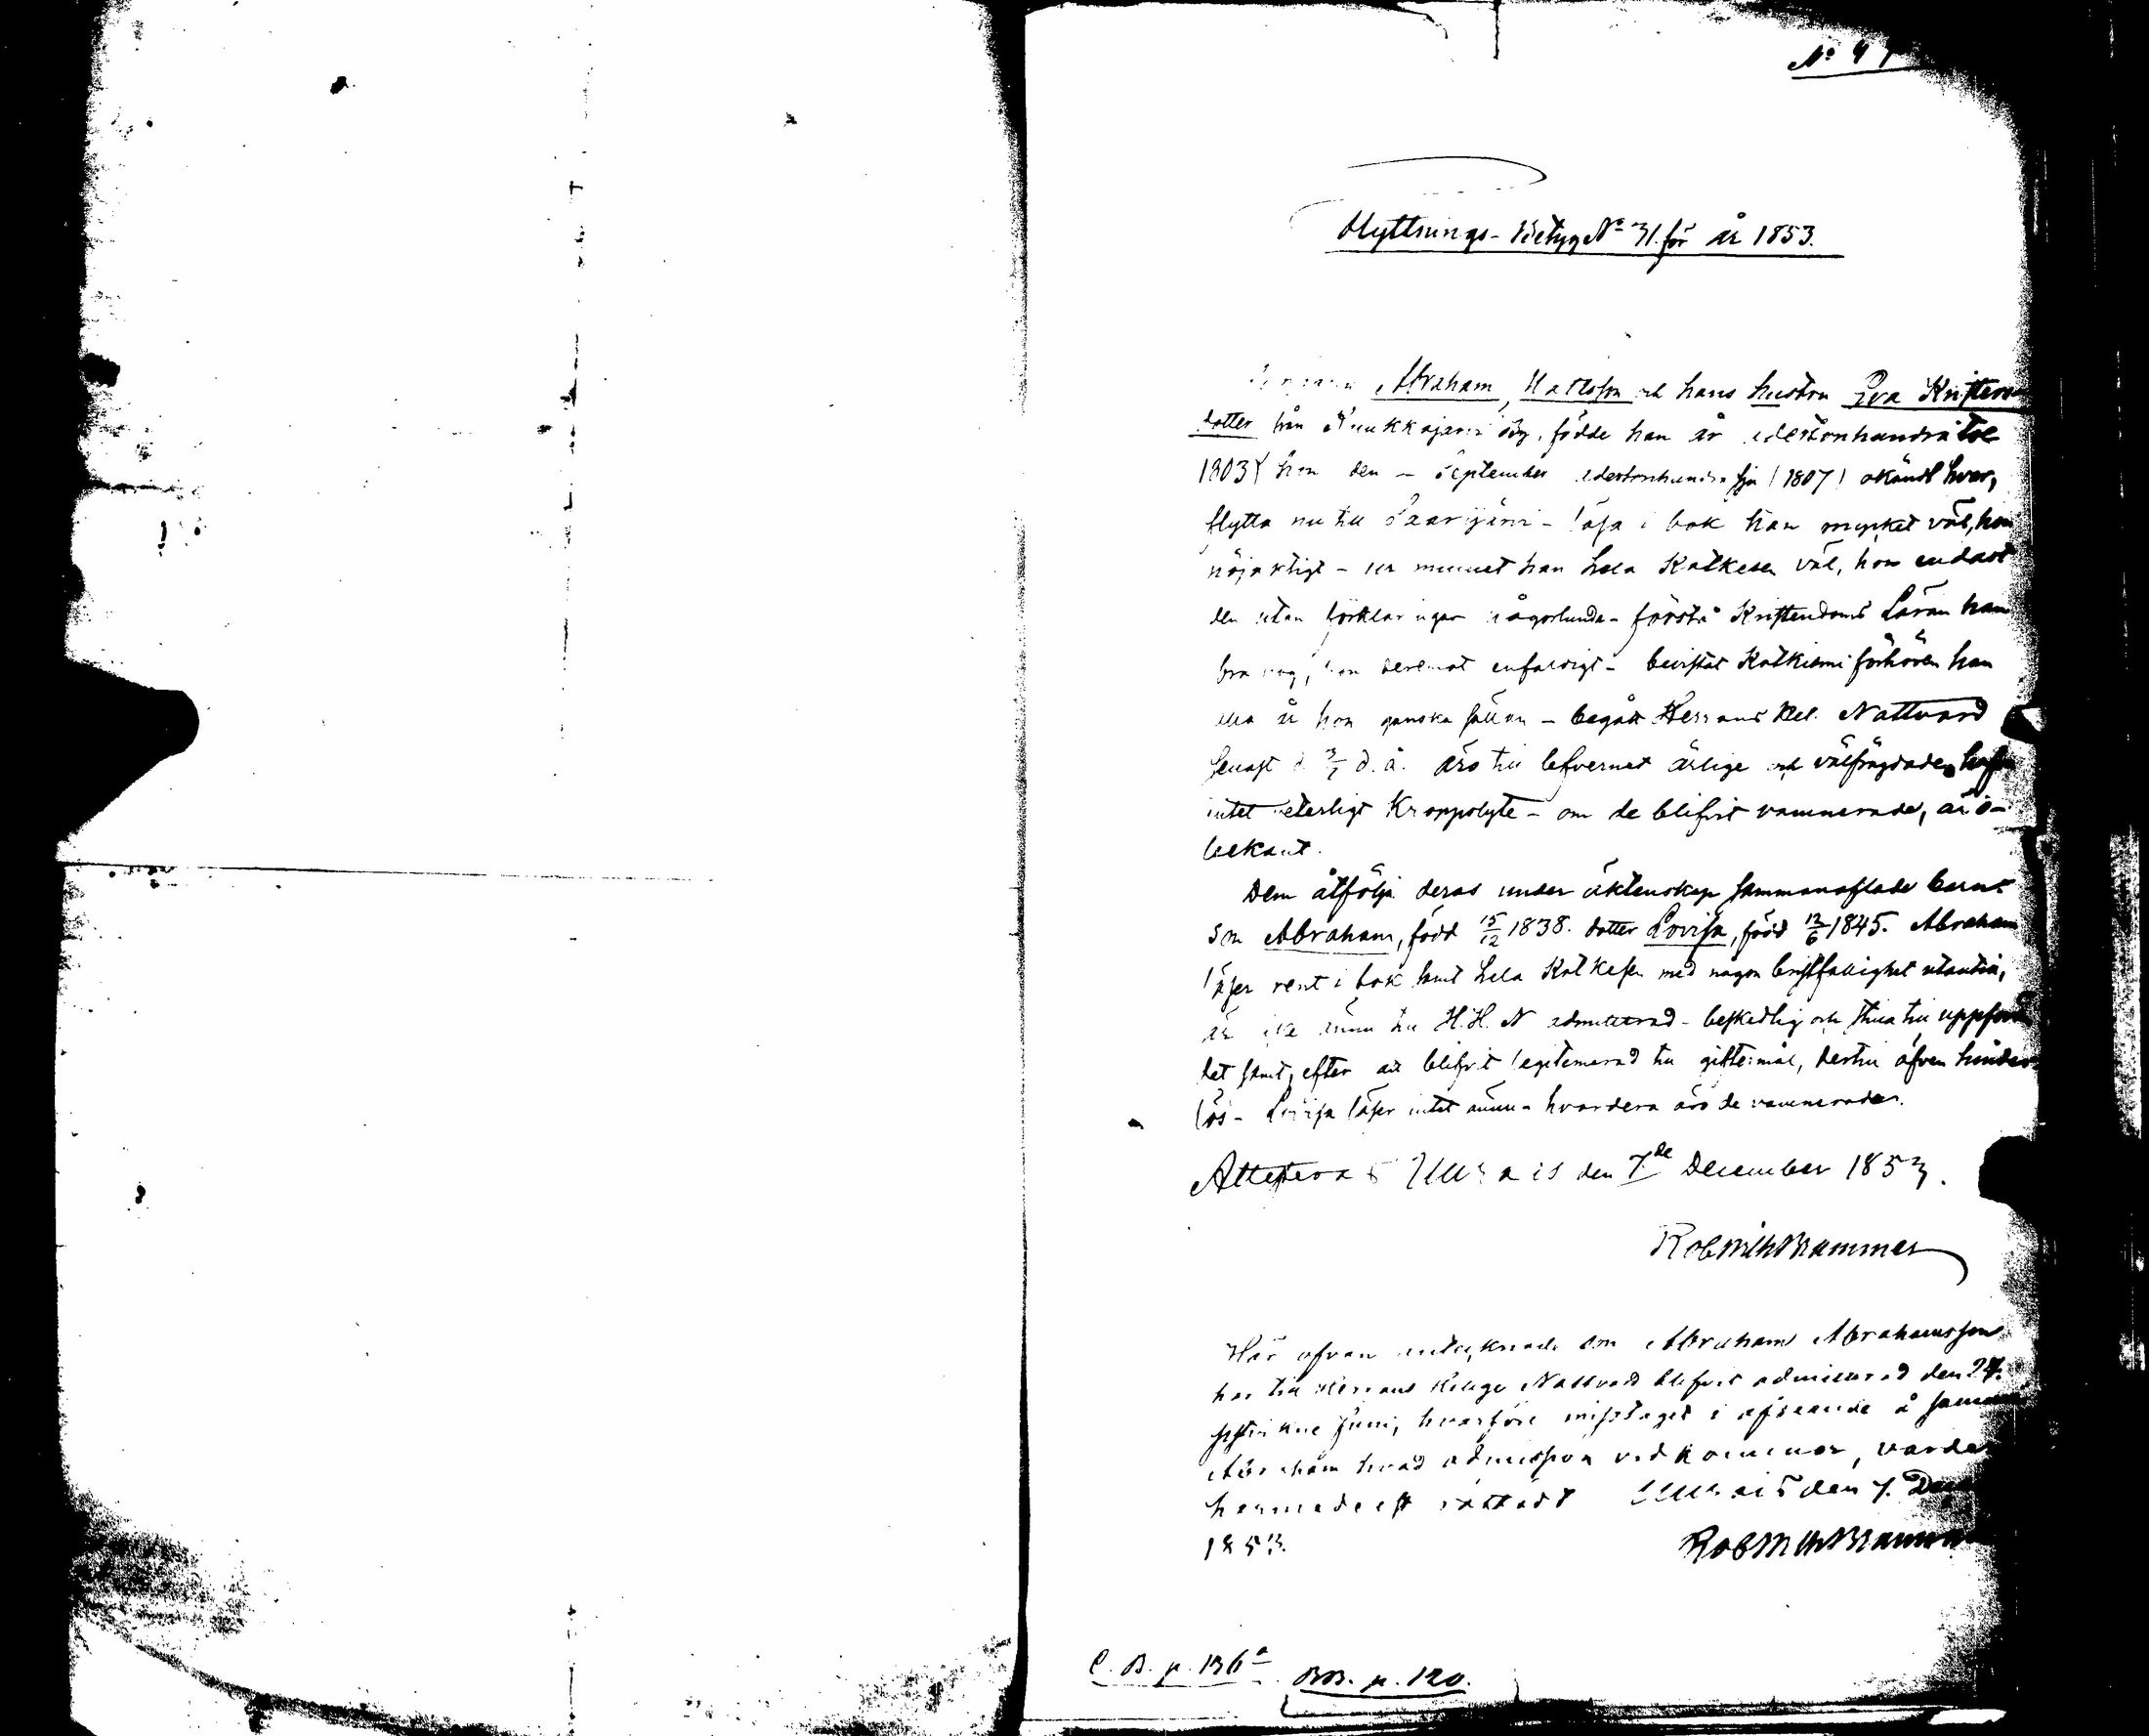 No 4
Flyttnings-Betyg No 31. för år 1853.
Abraham Mattsson och hans hustru Eva Kristers
dotter från by, födde han år adertonhundra tre
1803 hon den – September adertonhundra sju (1807) okändt hvar,
flytta nu till Saarijärvi – läsa i bok han mycket väl, hon
nöjaktigt – ur minnet han hela Katkesen väl, hon endast
den utan förklaringar någorlunda – förstå Kristendoms Läran han
bra nog, hon deremot enfaldigt – bevistat Katkismi förhören han
alla år hon ganska sällan – begått Herrans Hel. Nattvard
senast d. 3/7 d. å. äro till lefvernet ärlige och välfrägdade, hafva
intet veterligt Kroppslyte – om de blifvit vaccinerade, är o-
bekant.
Dem åtfölja deras under äktenskap sammanaflade barn:
Son Abraham, född 15/12 1838. dotter Lovisa, född 12/6 1845. Abraham
läser rent i bok samt hela Katkesen med någon bristfällighet utantill,
är icke ännu till H. H. N admitterad – beskedlig och stilla till uppföran
det samt, efter att blifvit legitimerad till giftermål, dertill äfven hinder
lös – Lovisa läser intet ännu – hvardera äro de vaccinerade.
Attesterar den 7de December 1853.
Rob Wilh Brammer
Här ofvan antecknade son Abraham Abrahamsson
har till Herrans Helige Nattvard blifvit admitterad den 24.
sistvikne Juni, hvarföre misstaget i afseende å samme
Abraham hvad admission vidkommer, varder
härmedelst rättadt den 7. Dec
1853.
Rob Wilh Brammer
C. B. p. 136a BB. p. 120.